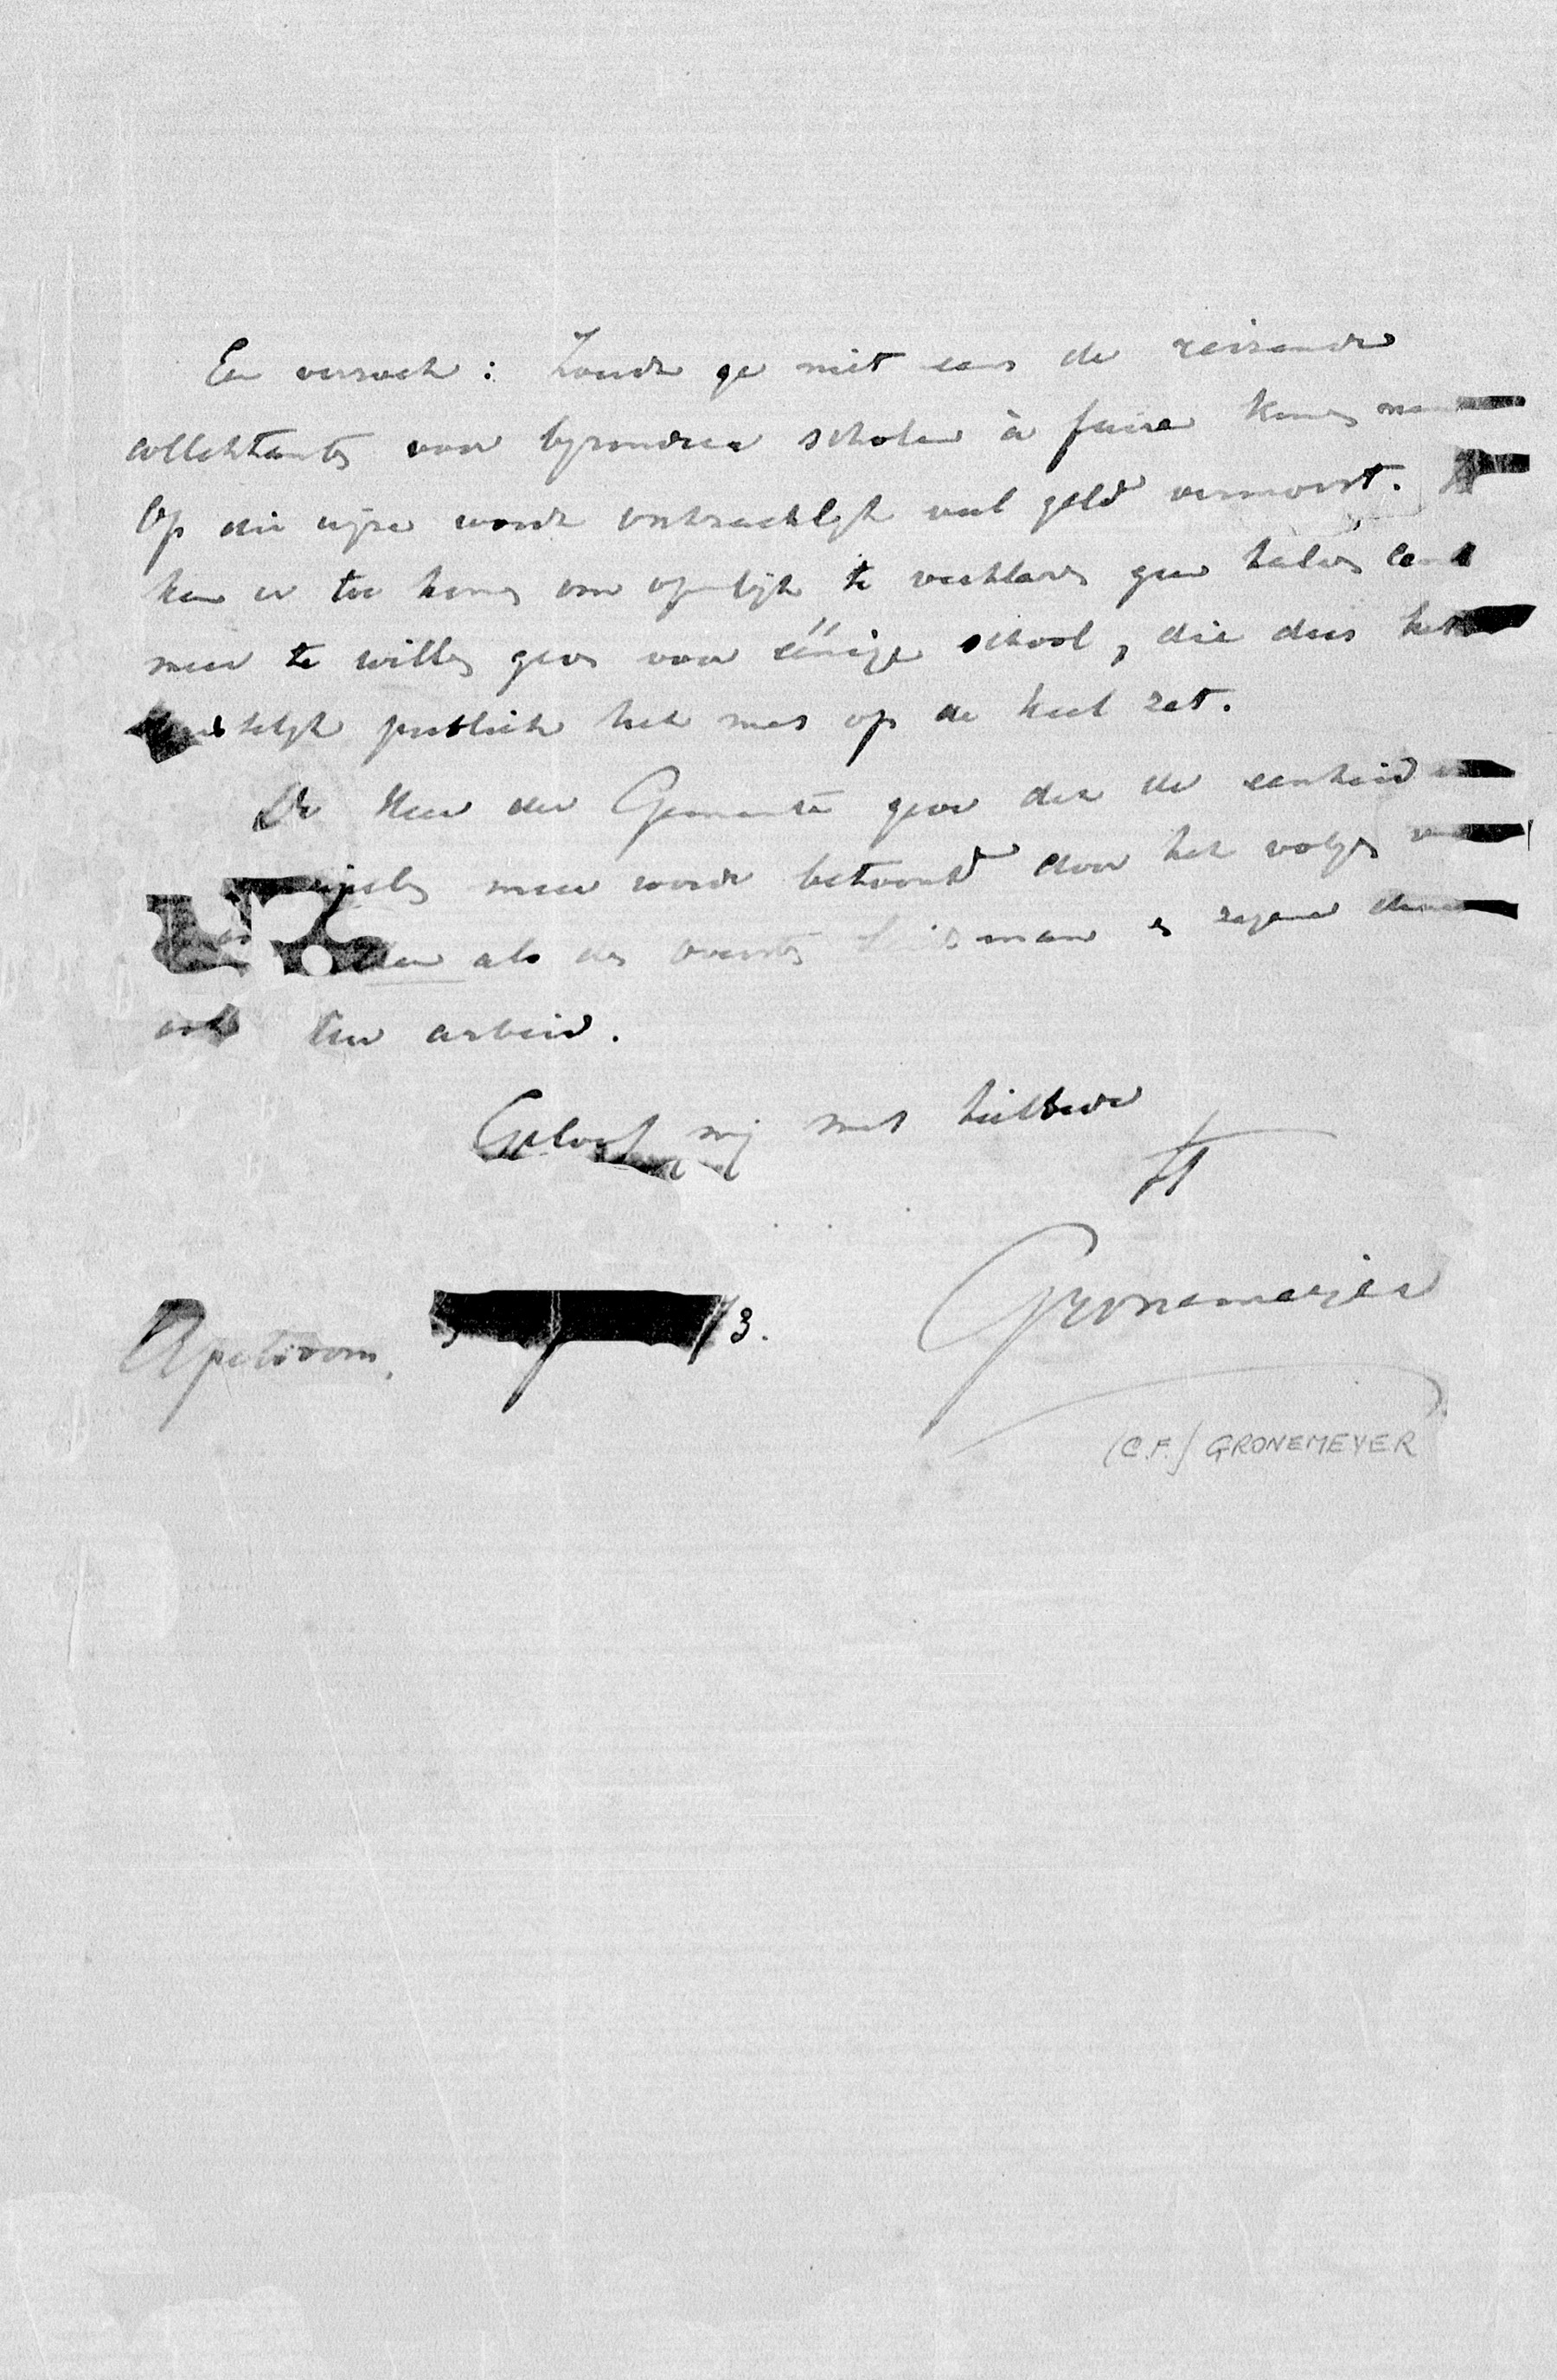 Een verzoek: Zoudt ge niet eens de reizende
collektanten voor byzondere scholen à faire kunnen
Op die wijze wordt ontzachlyk veel geld vermorst.
ken er toe komen om openlijk te verklaren geen halven cent
meer te willen geven voor eenige school, die dus het
publiek het mes op de keel zet.
De Heer der Gemeente geve dat de eenheid
meer worde betoond door het volgen
als den oversten man en zegene
ook Uw arbeid.
Geloof mij met heilbede
tt
Gronemeijer
Apeldoorn, 73.
(C.F.) GRONEMEYER